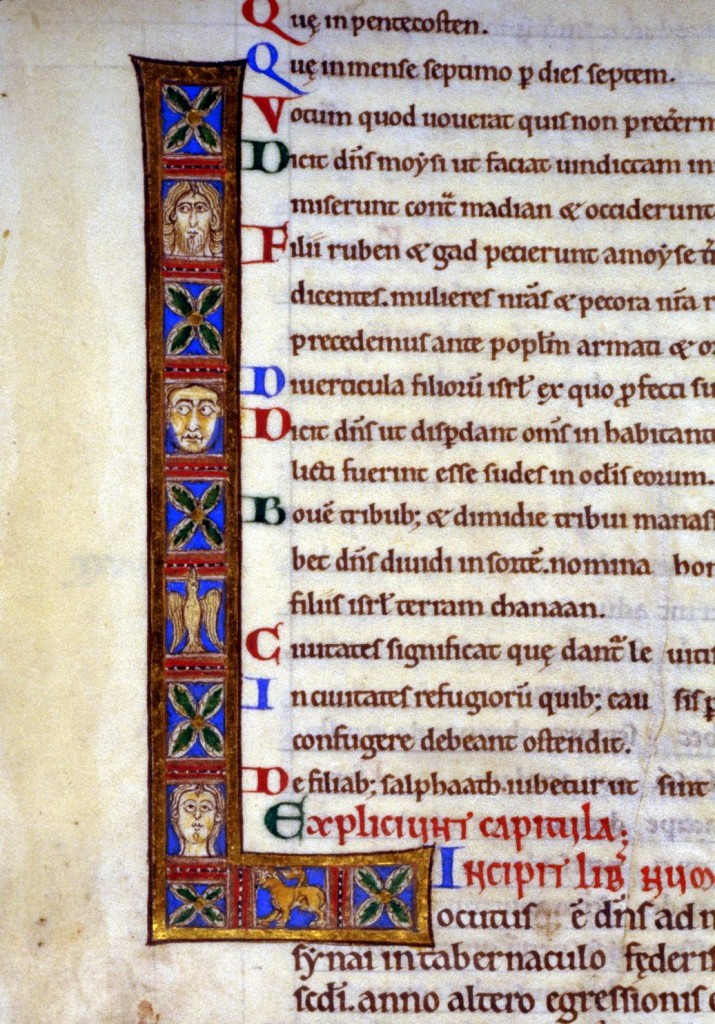 Quę in pentecosten.
Quę in mense septimo p dies septem.
Votum quod uouerat quis non
Dicit dn̄s moẏsi ut faciat uindictam in
miserunt cont̄ madian & occiderunt
Filii ruben & gad petierunt a moẏse
dicentes. mulieres nr̄as & pecora nr̄a
precedemus ante popl̄m armati &
Diuerticula filiorū isrl̄ ex quo ꝓfecti
Dicit dn̄s ut disꝑdant om̄s in habitant
licti fuerint esse sudes in oclīs eorum.
Nouē tribub; & dimidie tribui manas
bet dn̄s diuidi in sortē. nomina
filiis isrl̄ terram chanaan.
Ciuitates significat quę dant̄ le
In ciuitates refugiorū quib; cau
confugere debeant ostendit.
De filiab; salphaath. iubetur ut sint
Expliciunt capitula;
Incipit lib̄ num
Locutus ē dn̄s ad
sẏnai in tabernaculo fęderis
scdi. anno altero egressionis